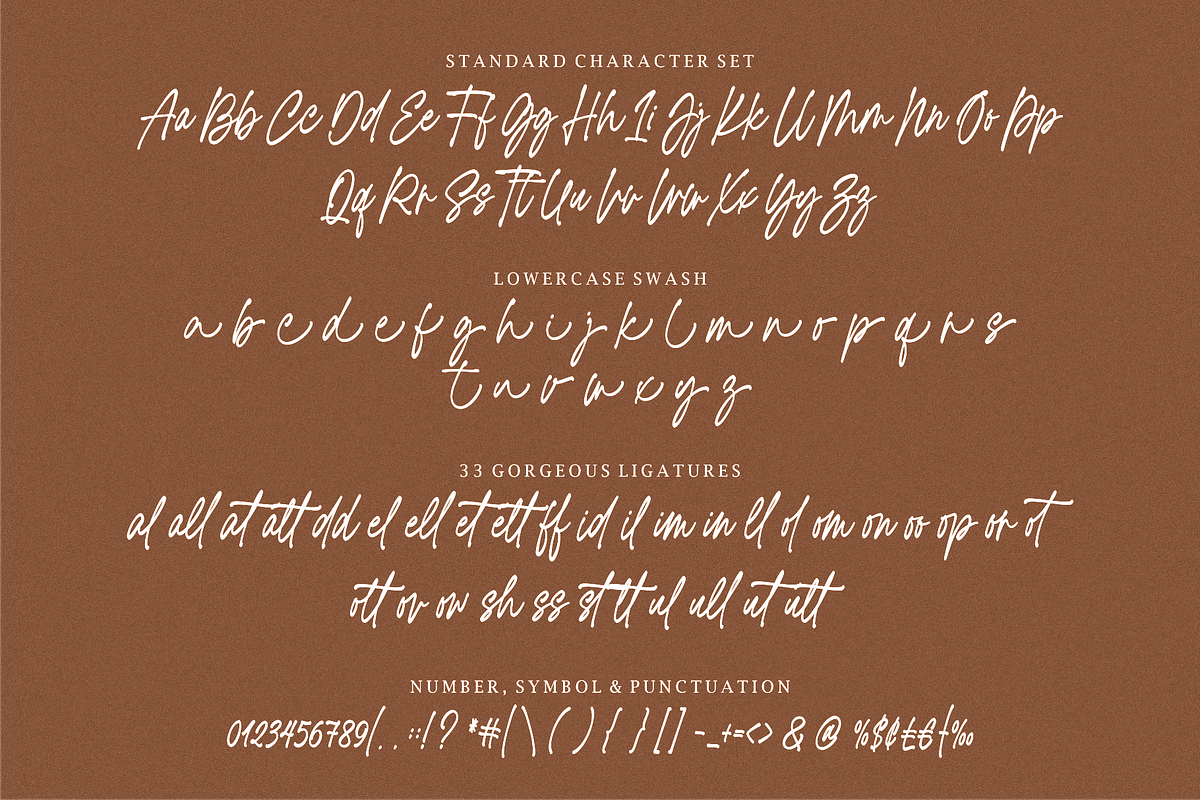 STANDARD CHARACTER SET
Aa Bb Cc Dd Ee Ff Gg Hh Ii Jj Kk Ll Mm Nn Oo Pp
Qq Rr Ss Tt Uu Vv Ww Xx Yy Zz
LOWERCASE SWASH
a b c d e f g h i j k l m n o p q r s
t u v w x y z
33 GORGEOUS LIGATURES
al all at att dd el ell et ett ff id il im in ll ol om on oo op or ot
ott ov ow sh ss st tt ul ull ut utt
NUMBER, SYMBOL & PUNCTUATION
0123456789 . . : : ! ? * # \ ( ) { } [ ] - _ + = < > & @ % $ ¢ £ € ‰